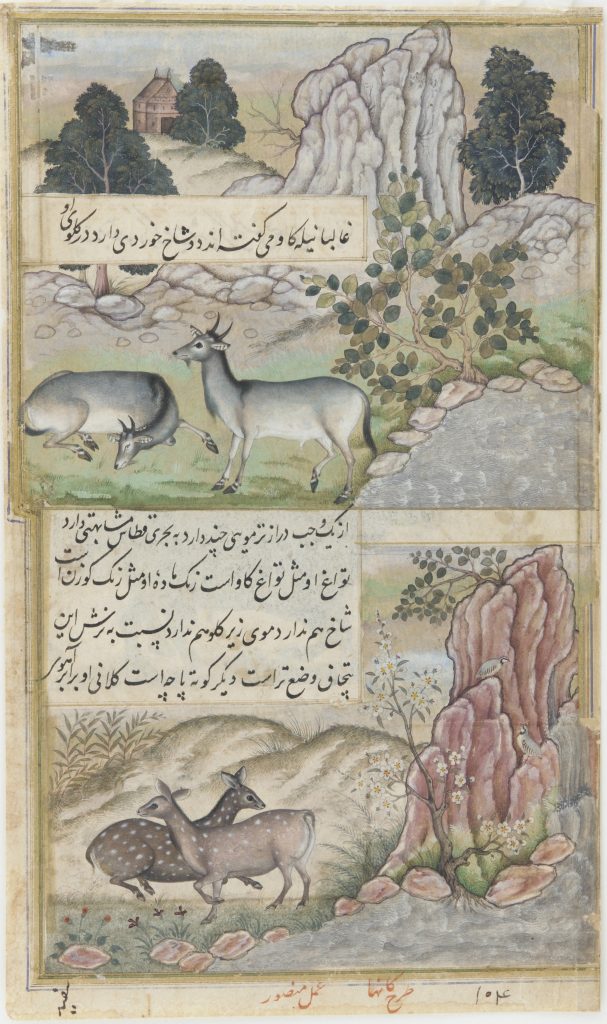 غالبا نیله کاو می کفته اند دو شاخ خوردی دارد در کلوی او
از یک وجب درازتر مویی چند دارد به بحری قطاس مشابهتی دارد
تواغ او مثل تواغ کاو است رنک ماده او مثل رنک کوزن است
شاخ هم ندارد موی زیر کلو هم ندارد نسبت به نرش این
پتچاق وضع تر است دیکر کوته پاچه است کلانی او برابر آهوی
۱۰۴ طرح کانها عمل منصور